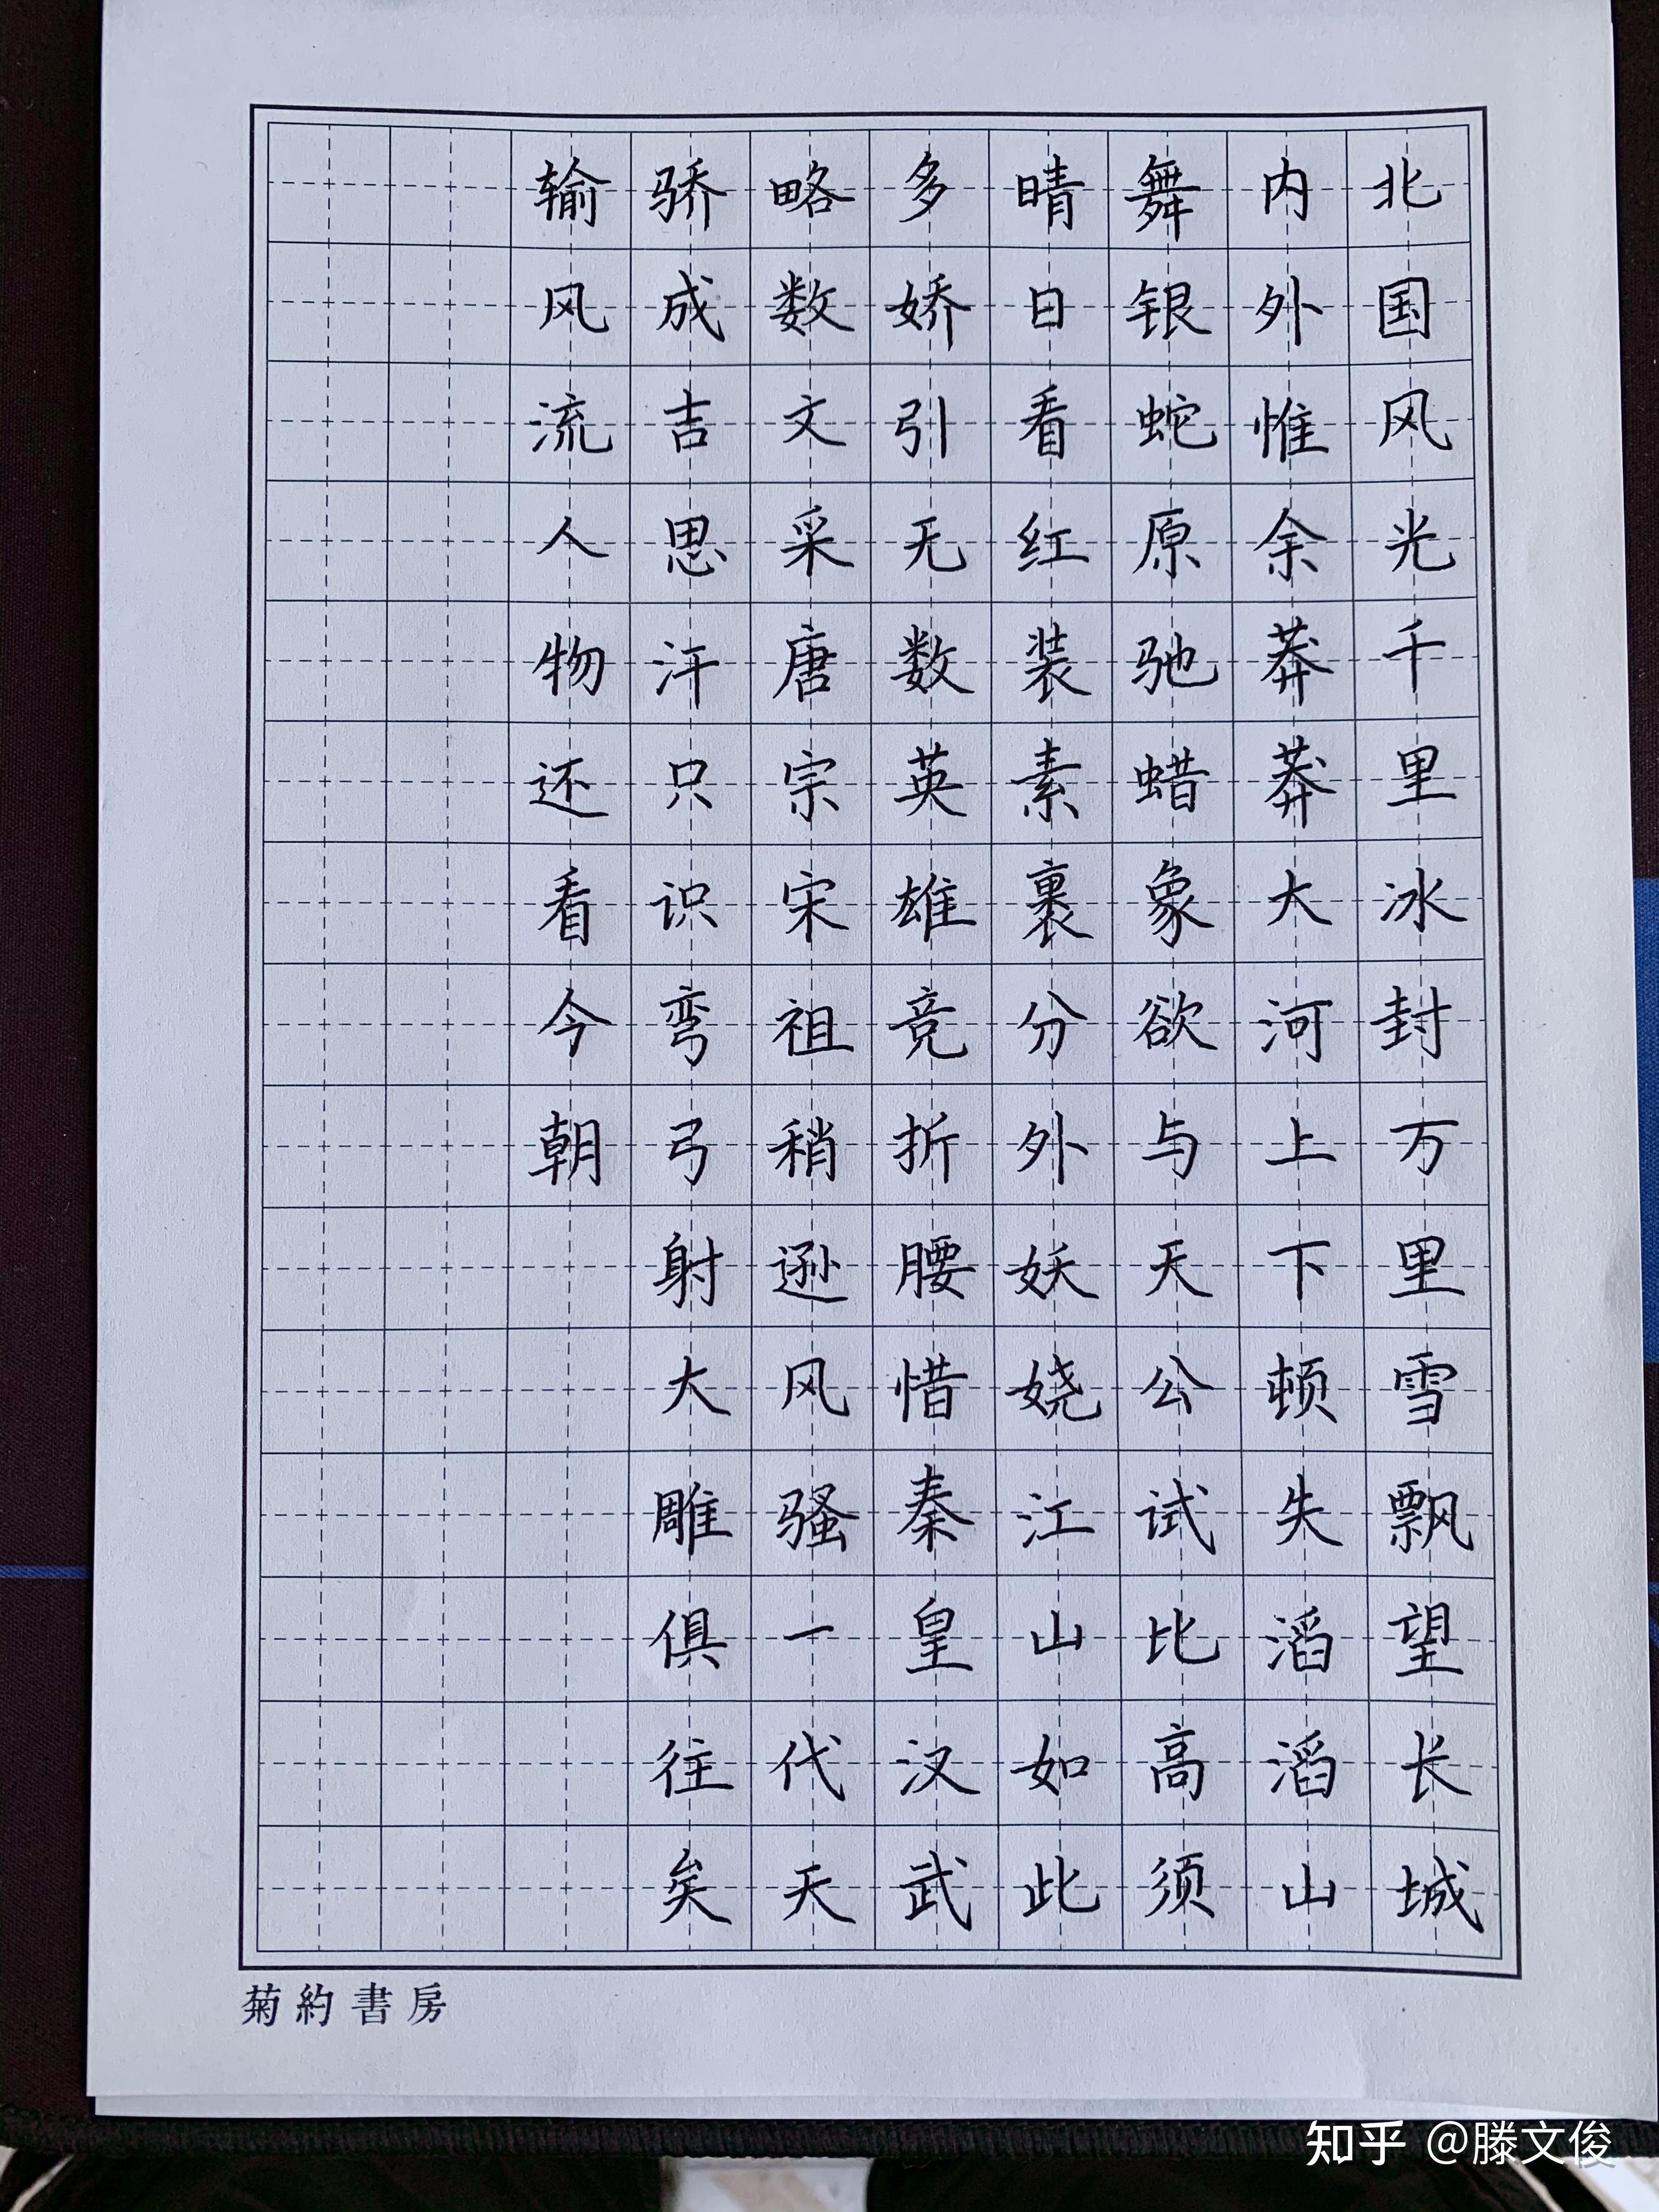 北国风光千里冰封万里雪飘望长城
内外惟余莽莽大河上下顿失滔滔山
舞银蛇原驰蜡象欲与天公试比高须
晴日看红装素裹分外妖娆江山如此
多娇引无数英雄竞折腰惜秦皇汉武
略数文采唐宗宋祖稍逊风骚一代天
骄成吉思汗只识弯弓射大雕俱往矣
输风流人物还看今朝
菊約書房
知乎 @滕文俊